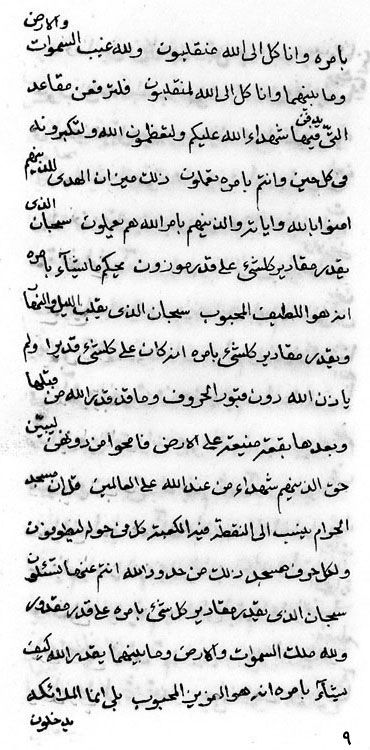 والارض
بامره وانا كل الى الله منقلبون ولله غيب السموات
وما بينهما وانا كل الى الله لمنقلبون فلترفعن مقاعد
يدفن
التى فيها شهداء الله عليكم ولتعظمون الله ولتكبرونه
فى كل حين وانتم بامره تعملون ذلك ميزان الهدى للذينهم
امنوا بالله واياته والذينهم بامر الله هم يعملون سبحان الذى
يقدر مقادير كلشئ على قدر موزون يحكم ما يشآء بامره
انه هو اللطيف المحبوب سبحان الذى يقلب الليل والنهار
ويقدر مقادير كلشئ بامره انه كان على كلشئ قديرا ولم
ياذن الله دون قبور الحروف وما قد قدر الله من قبلها
وبعدها بقعة منيعة على الارض فامحوا من دونهن ليبين
حق الذينهم شهداء من عند الله على العالمين قل ان مسجد
الحرام ينسب الى النقطة فيه الكعبة كل فى حوله ليطوفون
ولكل حرف مسجد ذلك من حدود الله انتم عنها تسئلون
سبحان الذى يقدر مقادير كل شئ بامره على قدر مقدور
ولله ملك السموات والارض وما بينهما يقدر الله كيف
يشآء بامره انه هو العزيز المحبوب بلى انما الملائكه
يدخلون
٩